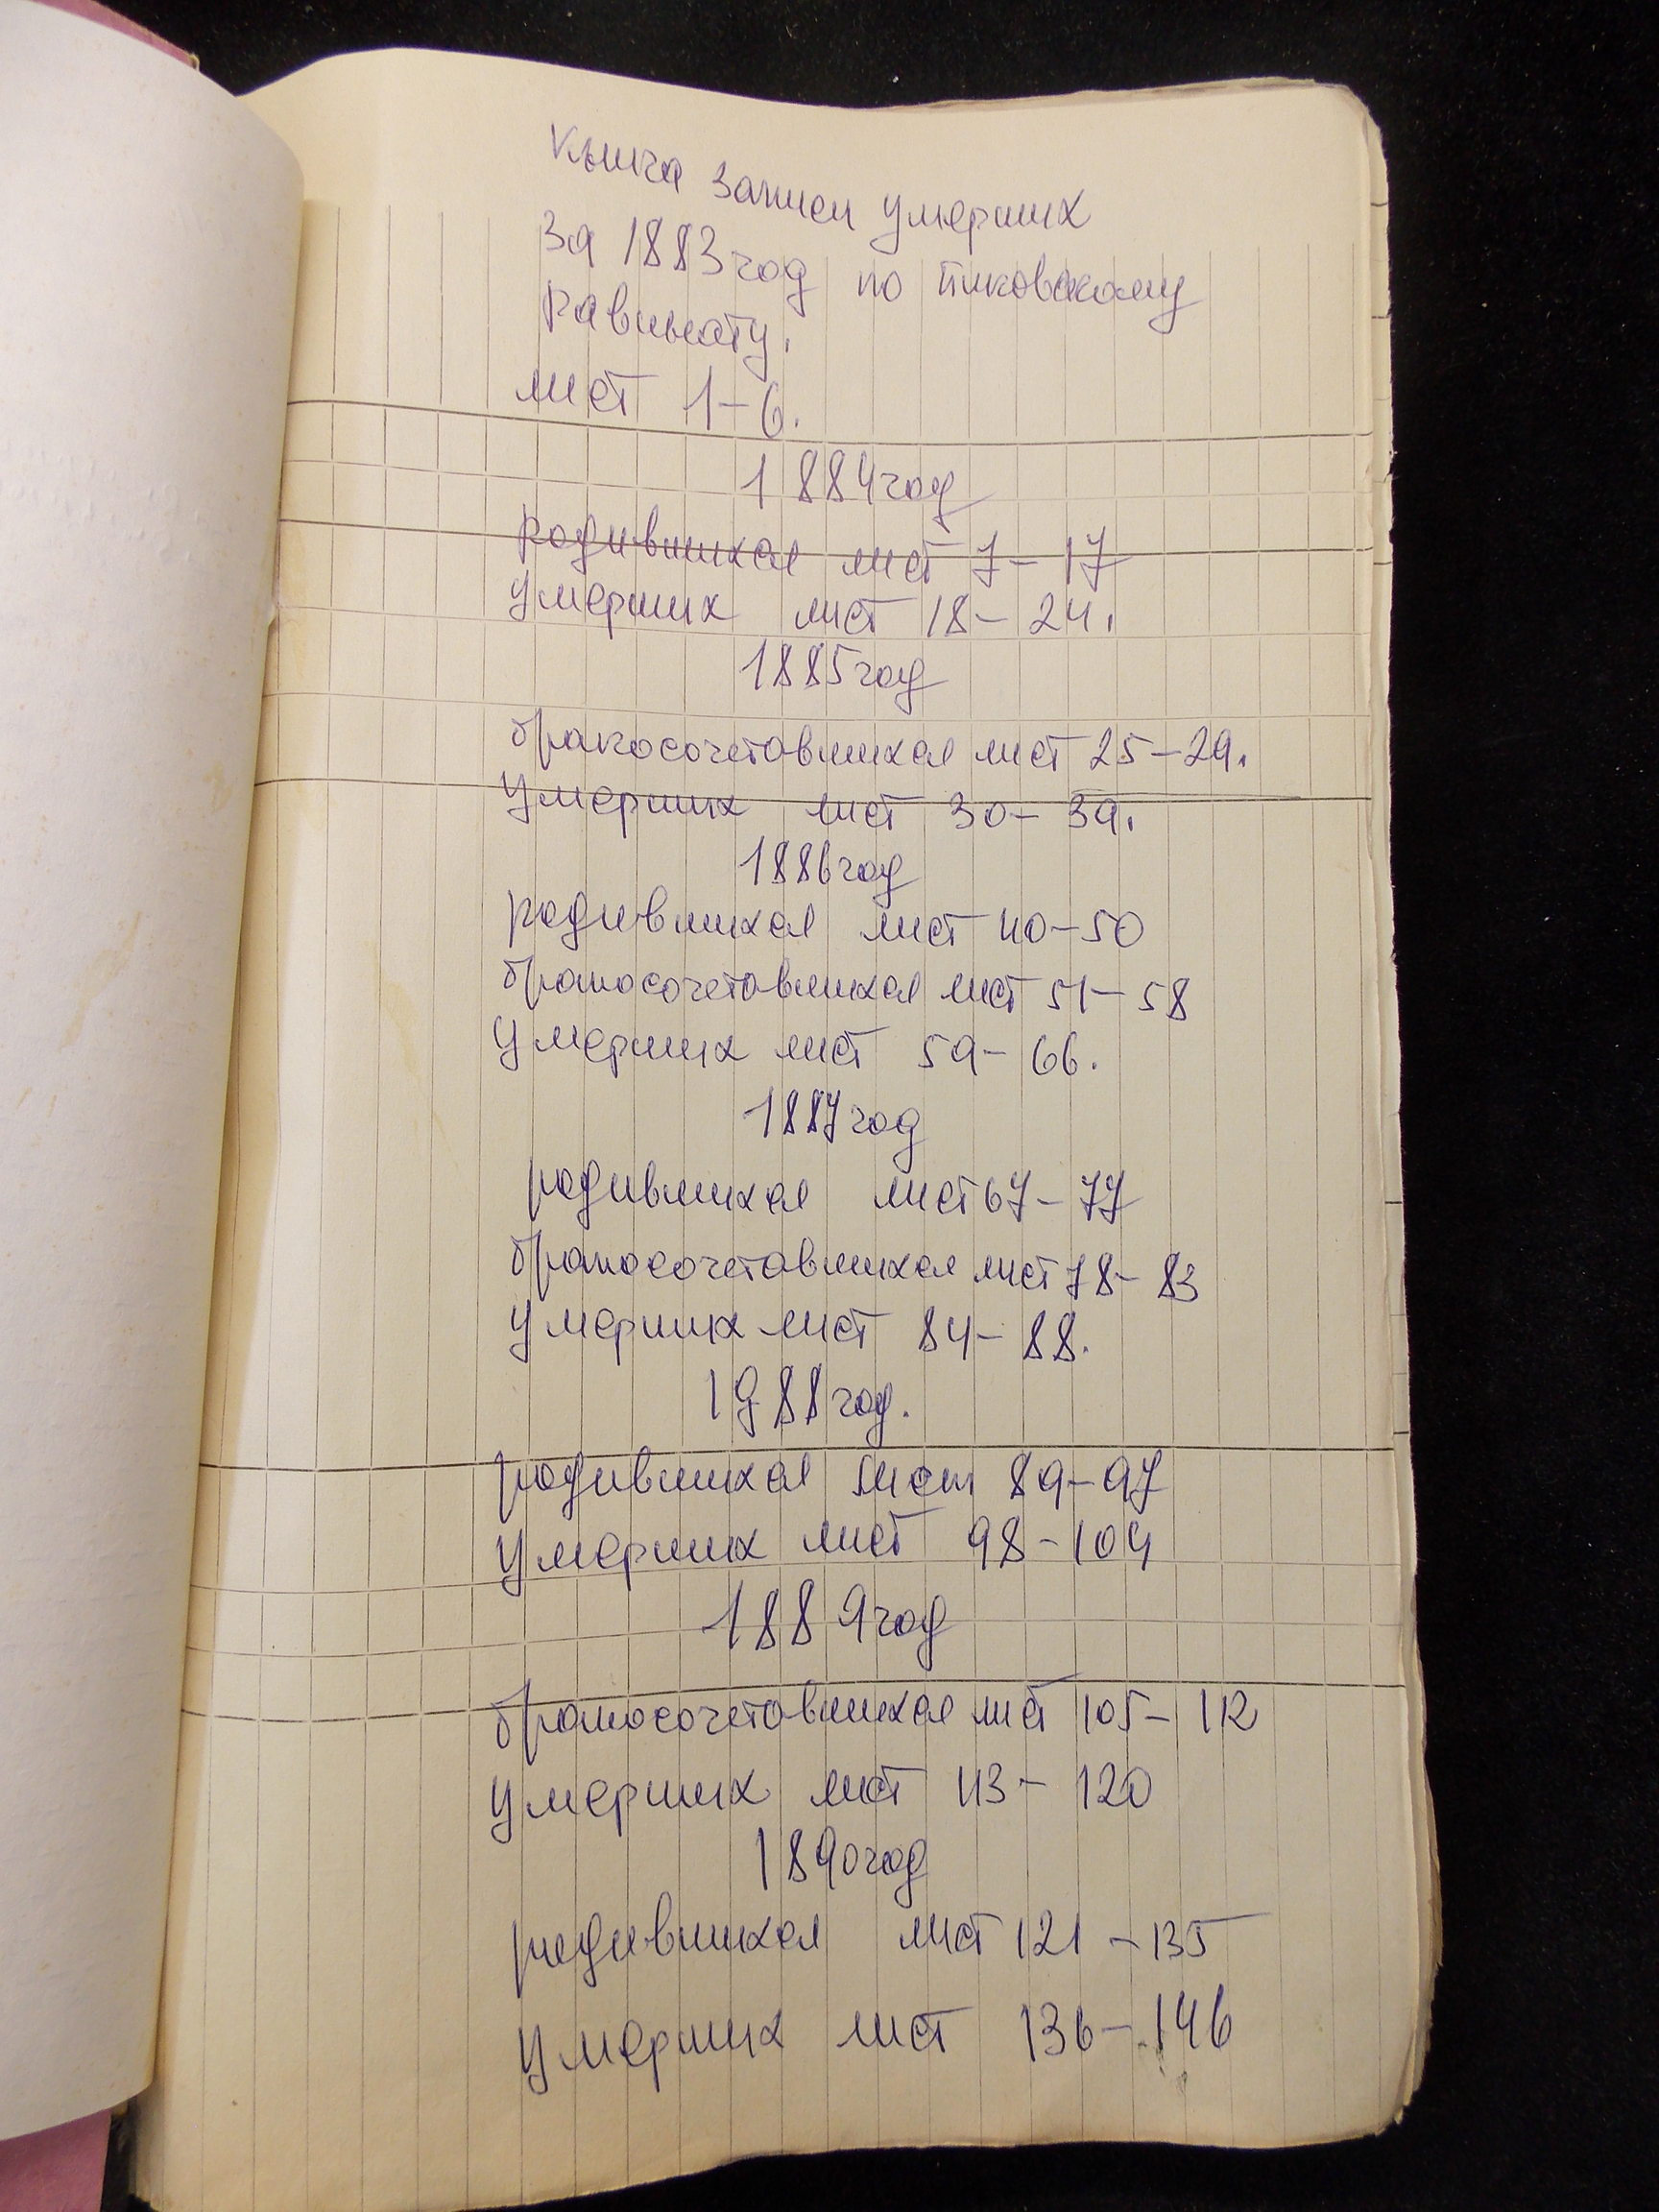 Кьнига записи умерших
За 1883 год по Пиковскому
Равинату.
лист 1-6.
1884 год
Родившихся лист 7-17
умерших лист 18-24.
1885 год
бракосочетавшихся лист 25-29.
Умерших лист 30-39.
1886 год
родившихся лист 40-50
бракосочетавшихся лист 51-58
Умерших лист 59-66.
1887 год
родившихся лист 67-77
бракосочетавшихся лист 78-83
Умерших лист 84-88.
1988 год.
родившихся лист 89-97
Умерших лист 98-104
1889 год
бракосочетавшихся лист 105-112
Умерших лист 113-120
1890 год
родившихся лист 121-135
Умерших лист 136-146